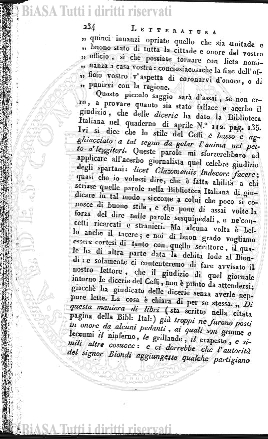 224 LETTERATURA
" quinci innanzi optiato quello che sia unitade e
" buono stato di tutta la cittade e onore del vostro
" uficio, sì che possiate tornare con lieta nomi-
" nanza a casa vostra: conciossiacosachè la fine dell'of-
" ficio vostro v'aspetta di coronarvi d'onore, o di
" punirvi con la ragione.
Questo piccolo saggio sarà d'assai, se non er-
ro, a provare quanto sia stato fallace e acerbo il
giudizio, che delle dicerie ha dato la Biblioteca
Italiana nel quaderno di aprile N.° 112. pag. 135.
Ivi si dice che lo stile del Cefi è basso e ag-
ghiacciato a tal segno da gelar l'anima nel pet-
to a' leggitori. Queste parole mi sforzerebbero ad
applicare all'acerbo giornalista quel celebre giudizio
degli spartani: licet Clazomeniis indecora facere:
quasi che io volessi dire, che è fatta abilità a chi
scrisse quelle parole nella Biblioteca Italiana di giu-
dicare in tal modo, siccome a colui che poco si com-
posce di buono stile, e che pone di assai volte la
forza del dire nelle parole sesquipedali, e ne' con-
cetti ricercati e stranieri. Ma alcuna volta è bel-
lo anche il tacere; e noi di buon grado vogliamo
essere cortesi di tanto con quello scrittore, il qua-
le ha di altra parte data la debita lode al Bion-
di: e solamente ci contenteremo di fare avvisato il
nostro lettore, che il giudizio di quel giornale
intorno le dicerie del Cefi, non è punto da attendersi;
giacchè ha giudicato delle dicerie senza averle nep-
pure lette. La cosa è chiara di per se stessa. " Di
questa maniera di libri (sta scritto nella citata
pagina della Bibl. Ital.) già troppi ne furono posti
in onore da alcuni pedanti, ai quali van gramme o
leconmi il ninferno, le gallande, il crapesto, e si-
mili altre cosucce: e ci dorrebbe che l'autorità
del signor Biondi aggiungesse qualche partigiano